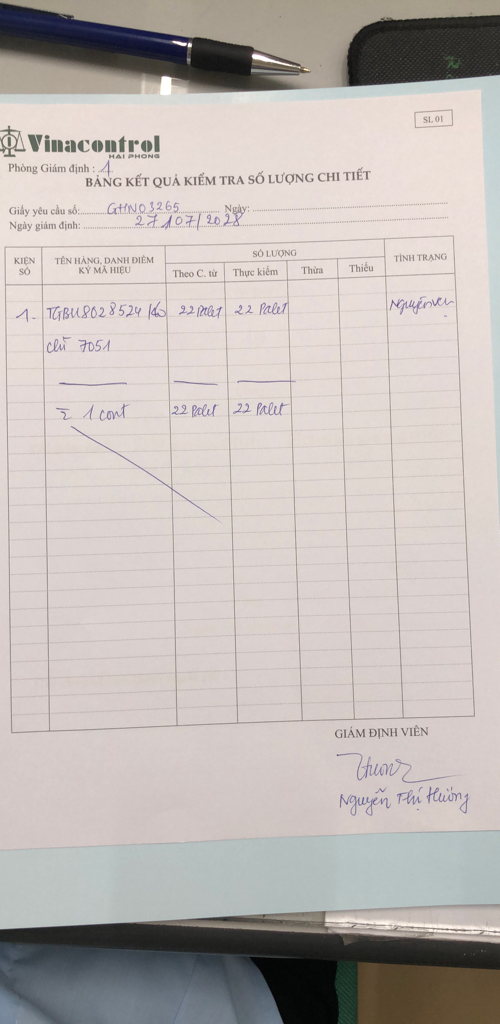 SL 01
Vinacontrol
HAI PHONG
Phòng Giám định : 1
BẢNG KẾT QUẢ KIỂM TRA SỐ LƯỢNG CHI TIẾT
Giấy yêu cầu số: GHN03265 Ngày:
Ngày giám định: 27/07/2028
KIỆN SỐ
TÊN HÀNG, DANH ĐIỂM KÝ MÃ HIỆU
SỐ LƯỢNG
TÌNH TRẠNG
Theo C. từ Thực kiểm Thừa Thiếu
1- TGBU8028524 / 22 Palet 22 Palet Nguyên vẹn
chì 7051
Σ 1 cont 22 Palet 22 Palet
GIÁM ĐỊNH VIÊN
Nguyễn Thị Hường